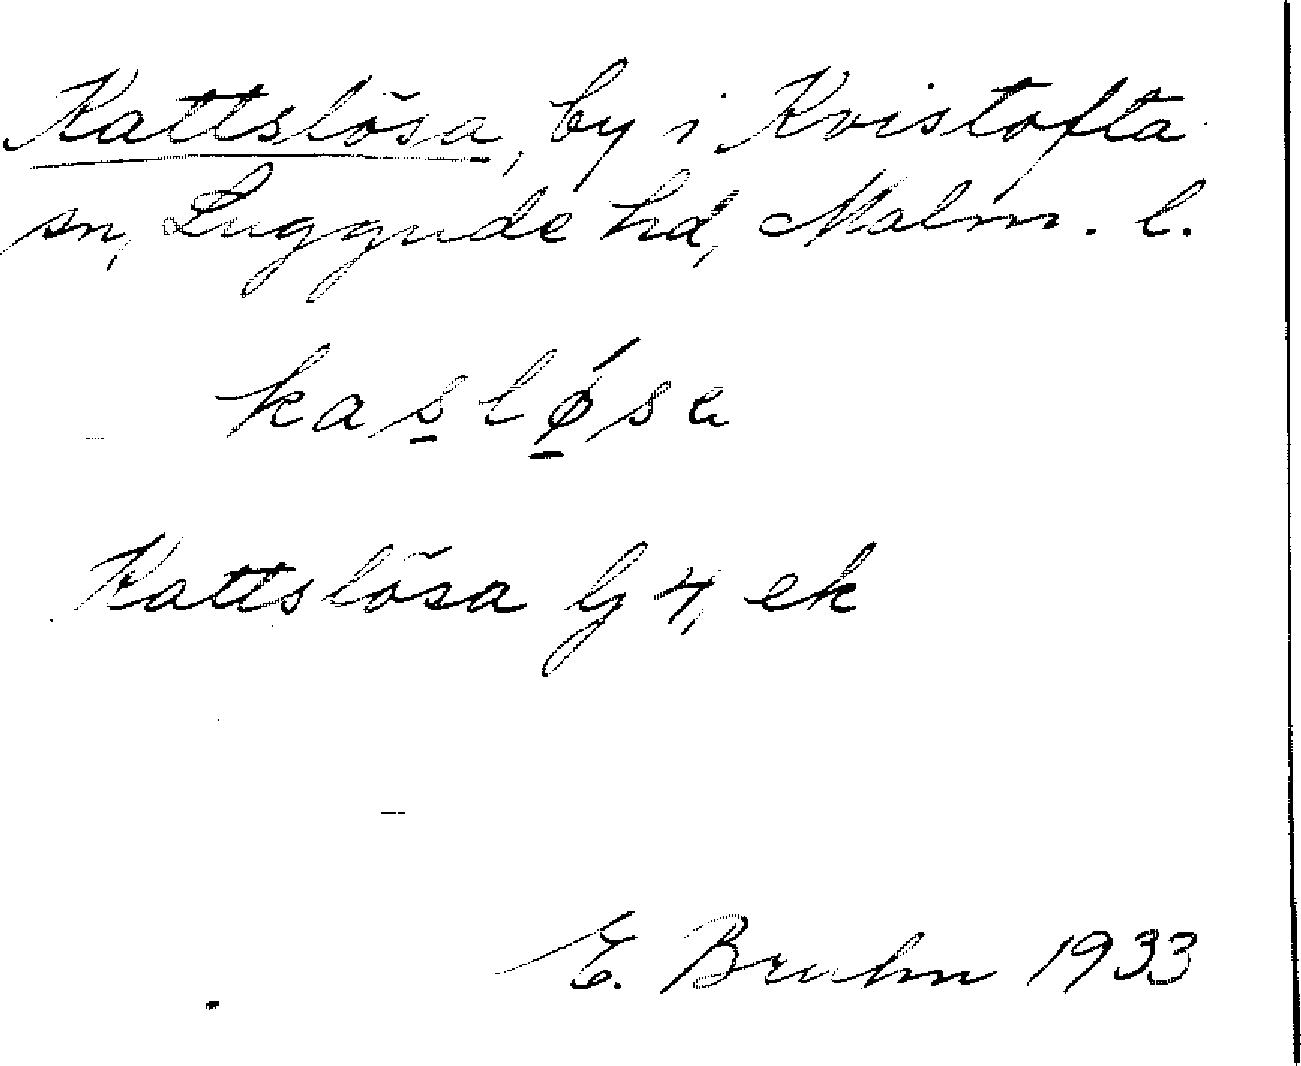 Kattslösa, by i Kvistofta
sn, Luggude hd, Malm. l.
kas̲lǿ̲sa
Kattslösa G 4, ek
E. Bruhn 1933